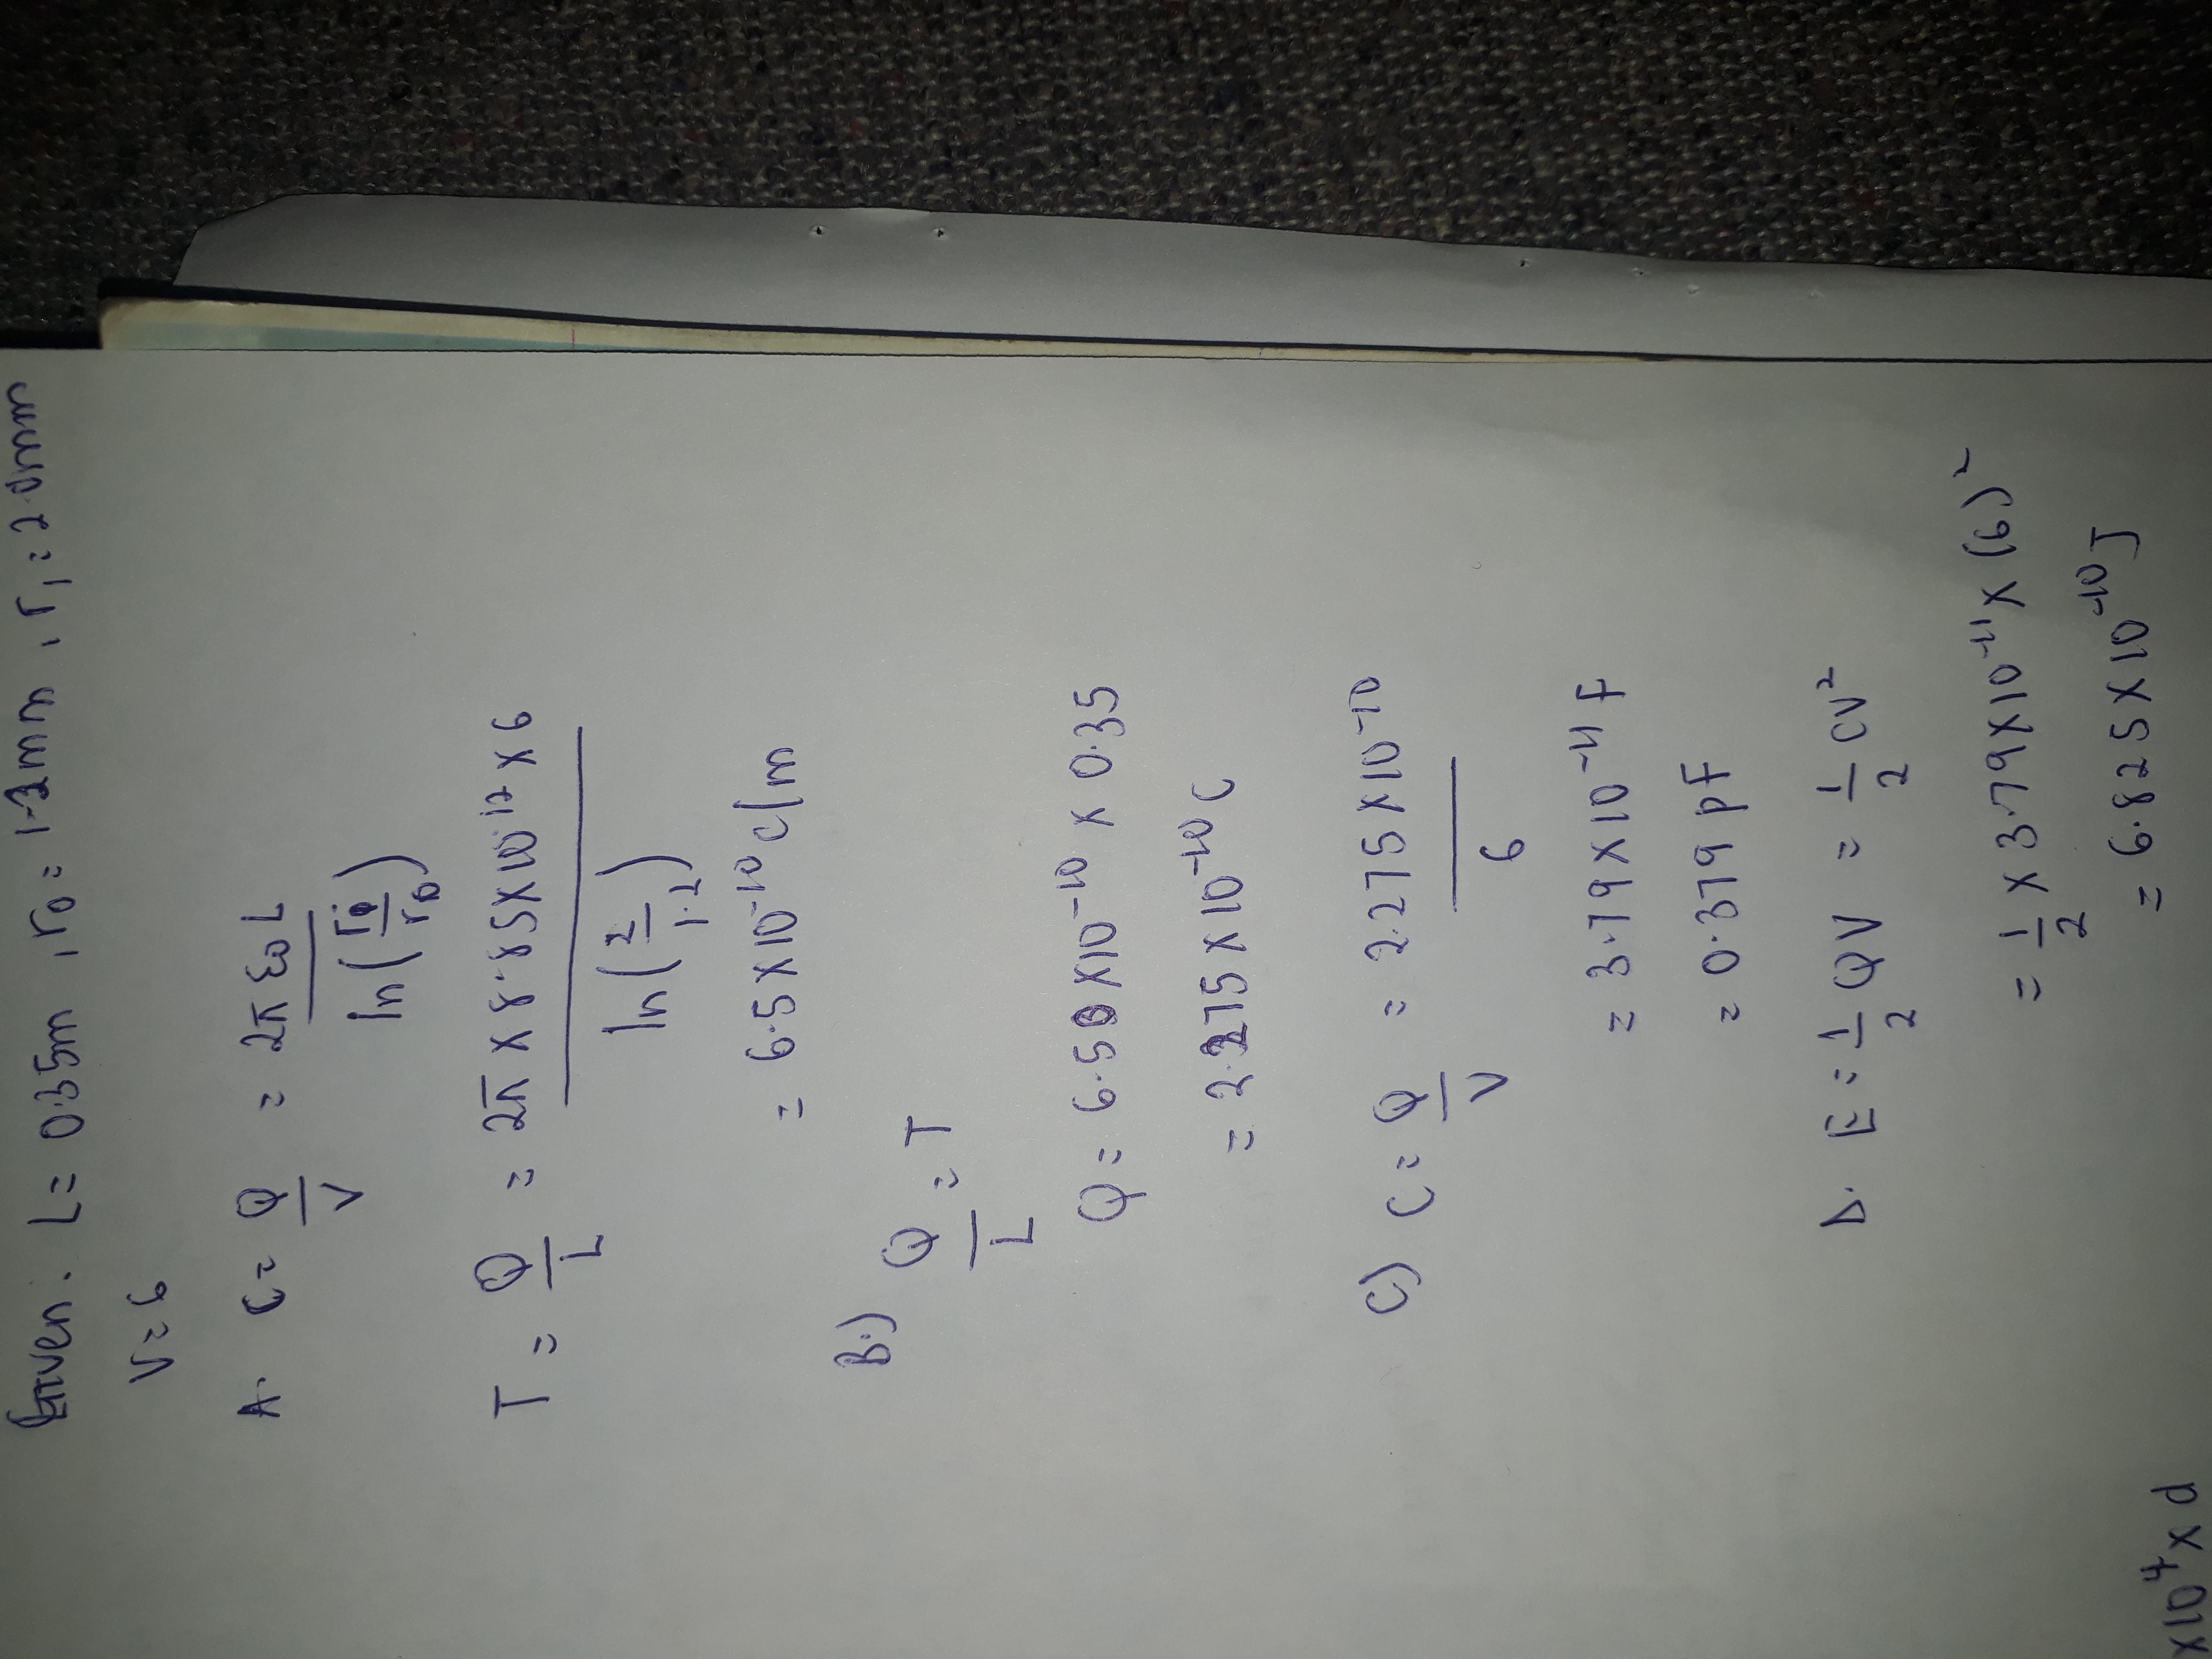 Given. L = 0.35m , r0 = 1.2mm , r1 = 2.0mm
V = 6
A. C = Q/V = 2π ε0 L / ln(r0/r0)
T = Q/L = 2π x 8.85 x 10^-12 x 6 / ln(2/1.2)
= 6.5 x 10^-10 C/m
B.) Q/L = T
Q = 6.50 x 10^-10 x 0.35
= 2.275 x 10^-10 C
C) C = Q/V = 2.275 x 10^-10 / 6
= 3.79 x 10^-11 F
= 0.379 pF
D. E = 1/2 QV = 1/2 CV²
= 1/2 x 3.79 x 10^-11 x (6)²
= 6.825 x 10^-10 J
x10^4 x d